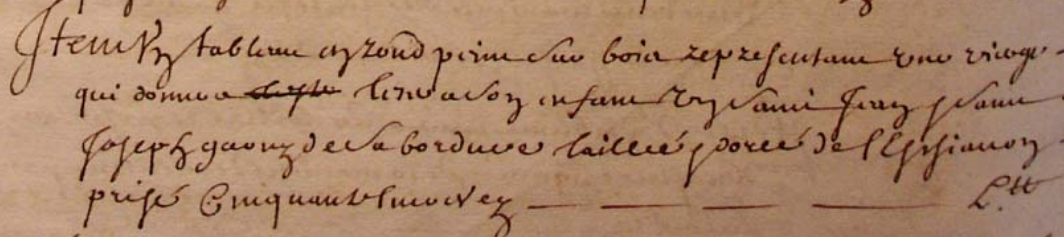 Item Un tableau en rond peint sur bois representant une vierge
qui donne a teter a son enfant un saint Jean & saint
Joseph garny de sa bordure taillée & dorée de l
prisé Cinquante livres L.tt